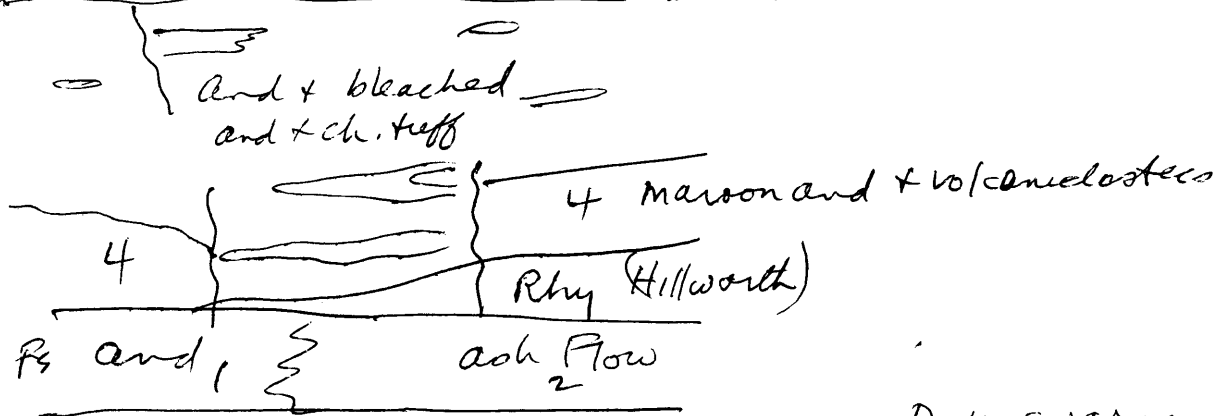 and + bleached
and + ch. tuff
4 maroon and + volcaniclastics
4
Rhy (Hillworth)
and, ash Flow
2